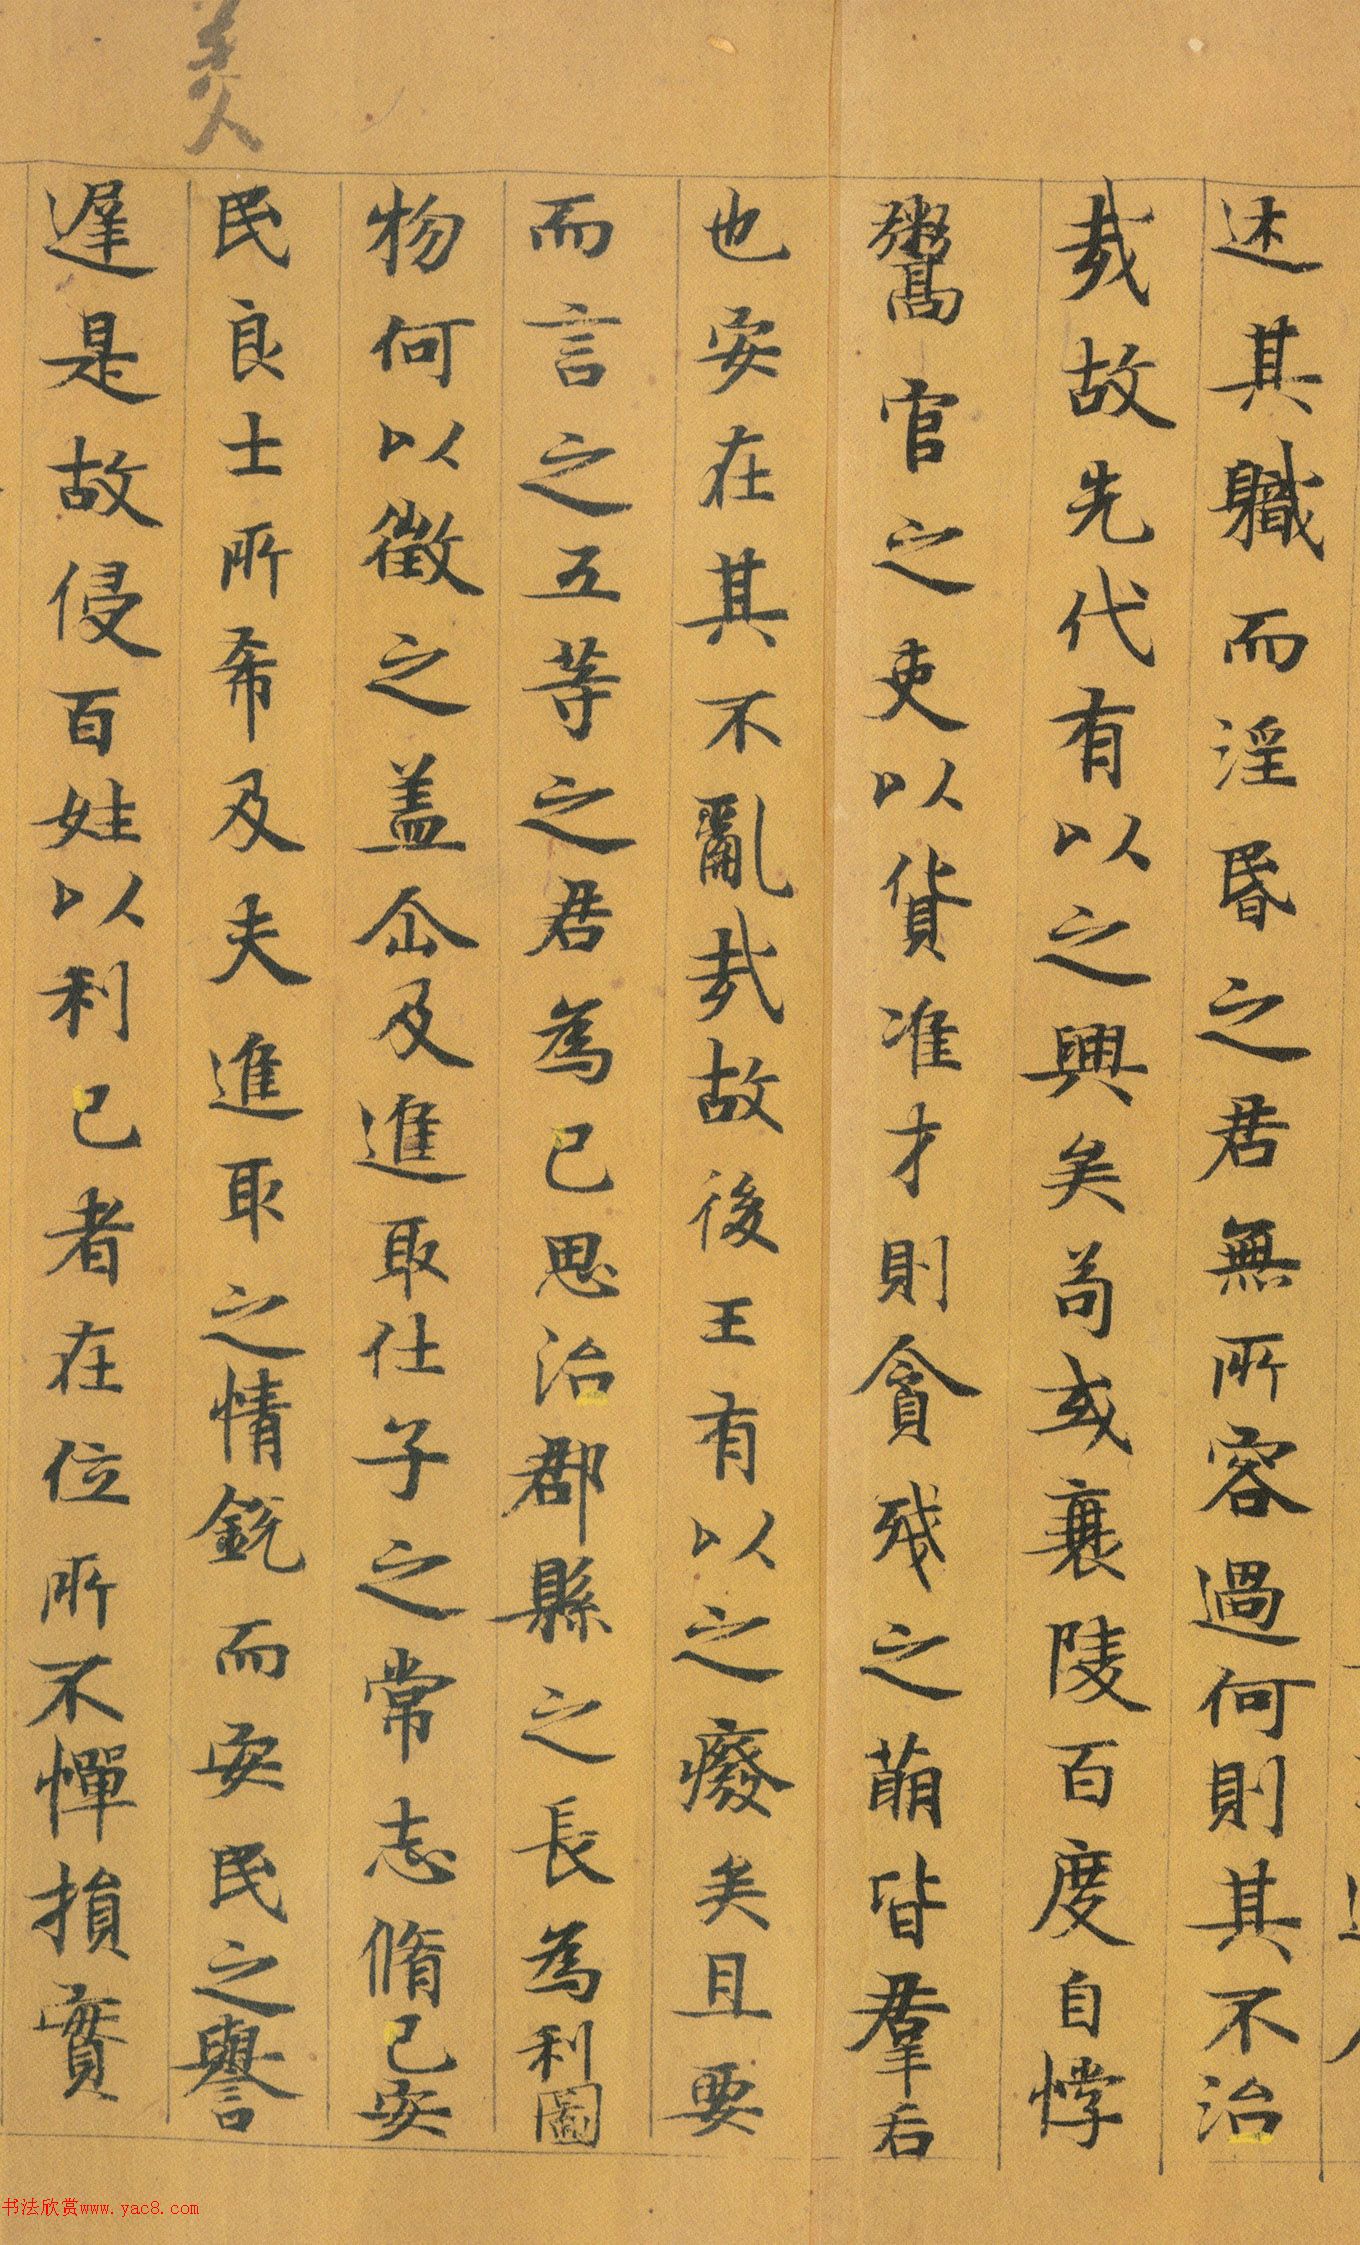 述其職而淫昏之君無所容過何則其不治
哉故先代有以之興矣苟或衰陵百度自悖
鬻官之吏以貨准才則貪殘之萠皆羣后
也安在其不亂哉故後王有以之廢矣且要
而言之五等之君為己思治郡縣之長為利圖
物何以徵之盖企及進取仕子之常志脩己安
民良士所希及夫進取之情銳而安民之譽
遲是故侵百姓以利己者在位所不憚損實
书法欣赏www.yac8.com